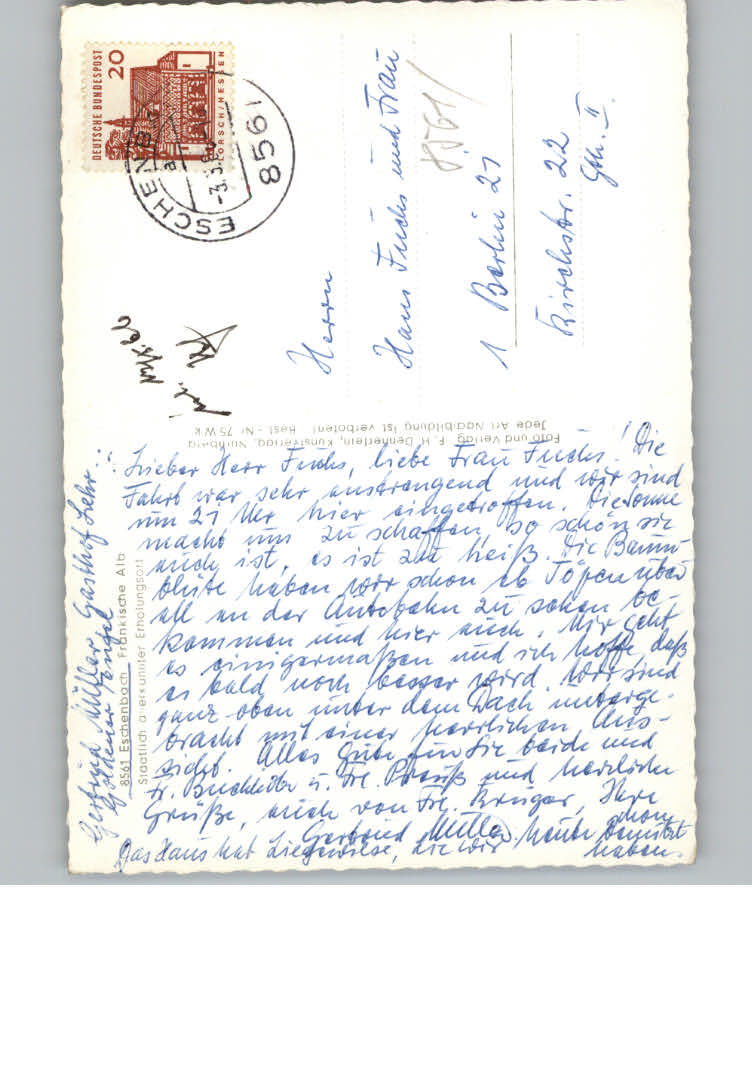 DEUTSCHE BUNDESPOST
20
LORSCH/HESSEN
ESCHENB
a
-3.5.6
8561
8561/
Herrn
Hans Fuchs und Frau
1 Berlin 21
Kirchstr. 22
Gth. II
Foto und Verlag F. H. Dennerlein, Kunstverlag, Nürnberg
Jede Art Nachbildung ist verboten! Best.-Nr 75 Wk
8561 Eschenbach Fränkische Alb
Staatlich anerkannter Erholungsort
Gertrud Müller, Gasthof Lehr
Goldener Engel
Lieber Herr Fuchs, liebe Frau Fuchs! Die
Fahrt war sehr anstrengend und wir sind
um 21 Uhr hier eingetroffen. Die Sonne
macht uns zu schaffen, so schön sie
auch ist, es ist zu heiß. Die Baum-
blüte haben wir schon ab Töpen über
all an der Autobahn zu sehen be-
kommen und hier auch. Mir geht
es einigermaßen und ich hoffe, daß
es bald noch besser wird. Wir sind
ganz oben unter dem Dach unterge-
bracht mit einer herrlichen Aus-
sicht. Alles Gute für Sie beide und
Fr. Buchholz u. Frl. Preuß und herzliche
Grüße, auch von Frl. Krüger, Ihre
Gertrud Müller.
Das Haus hat Liegewiese, die wir heute schon benutzt
haben.